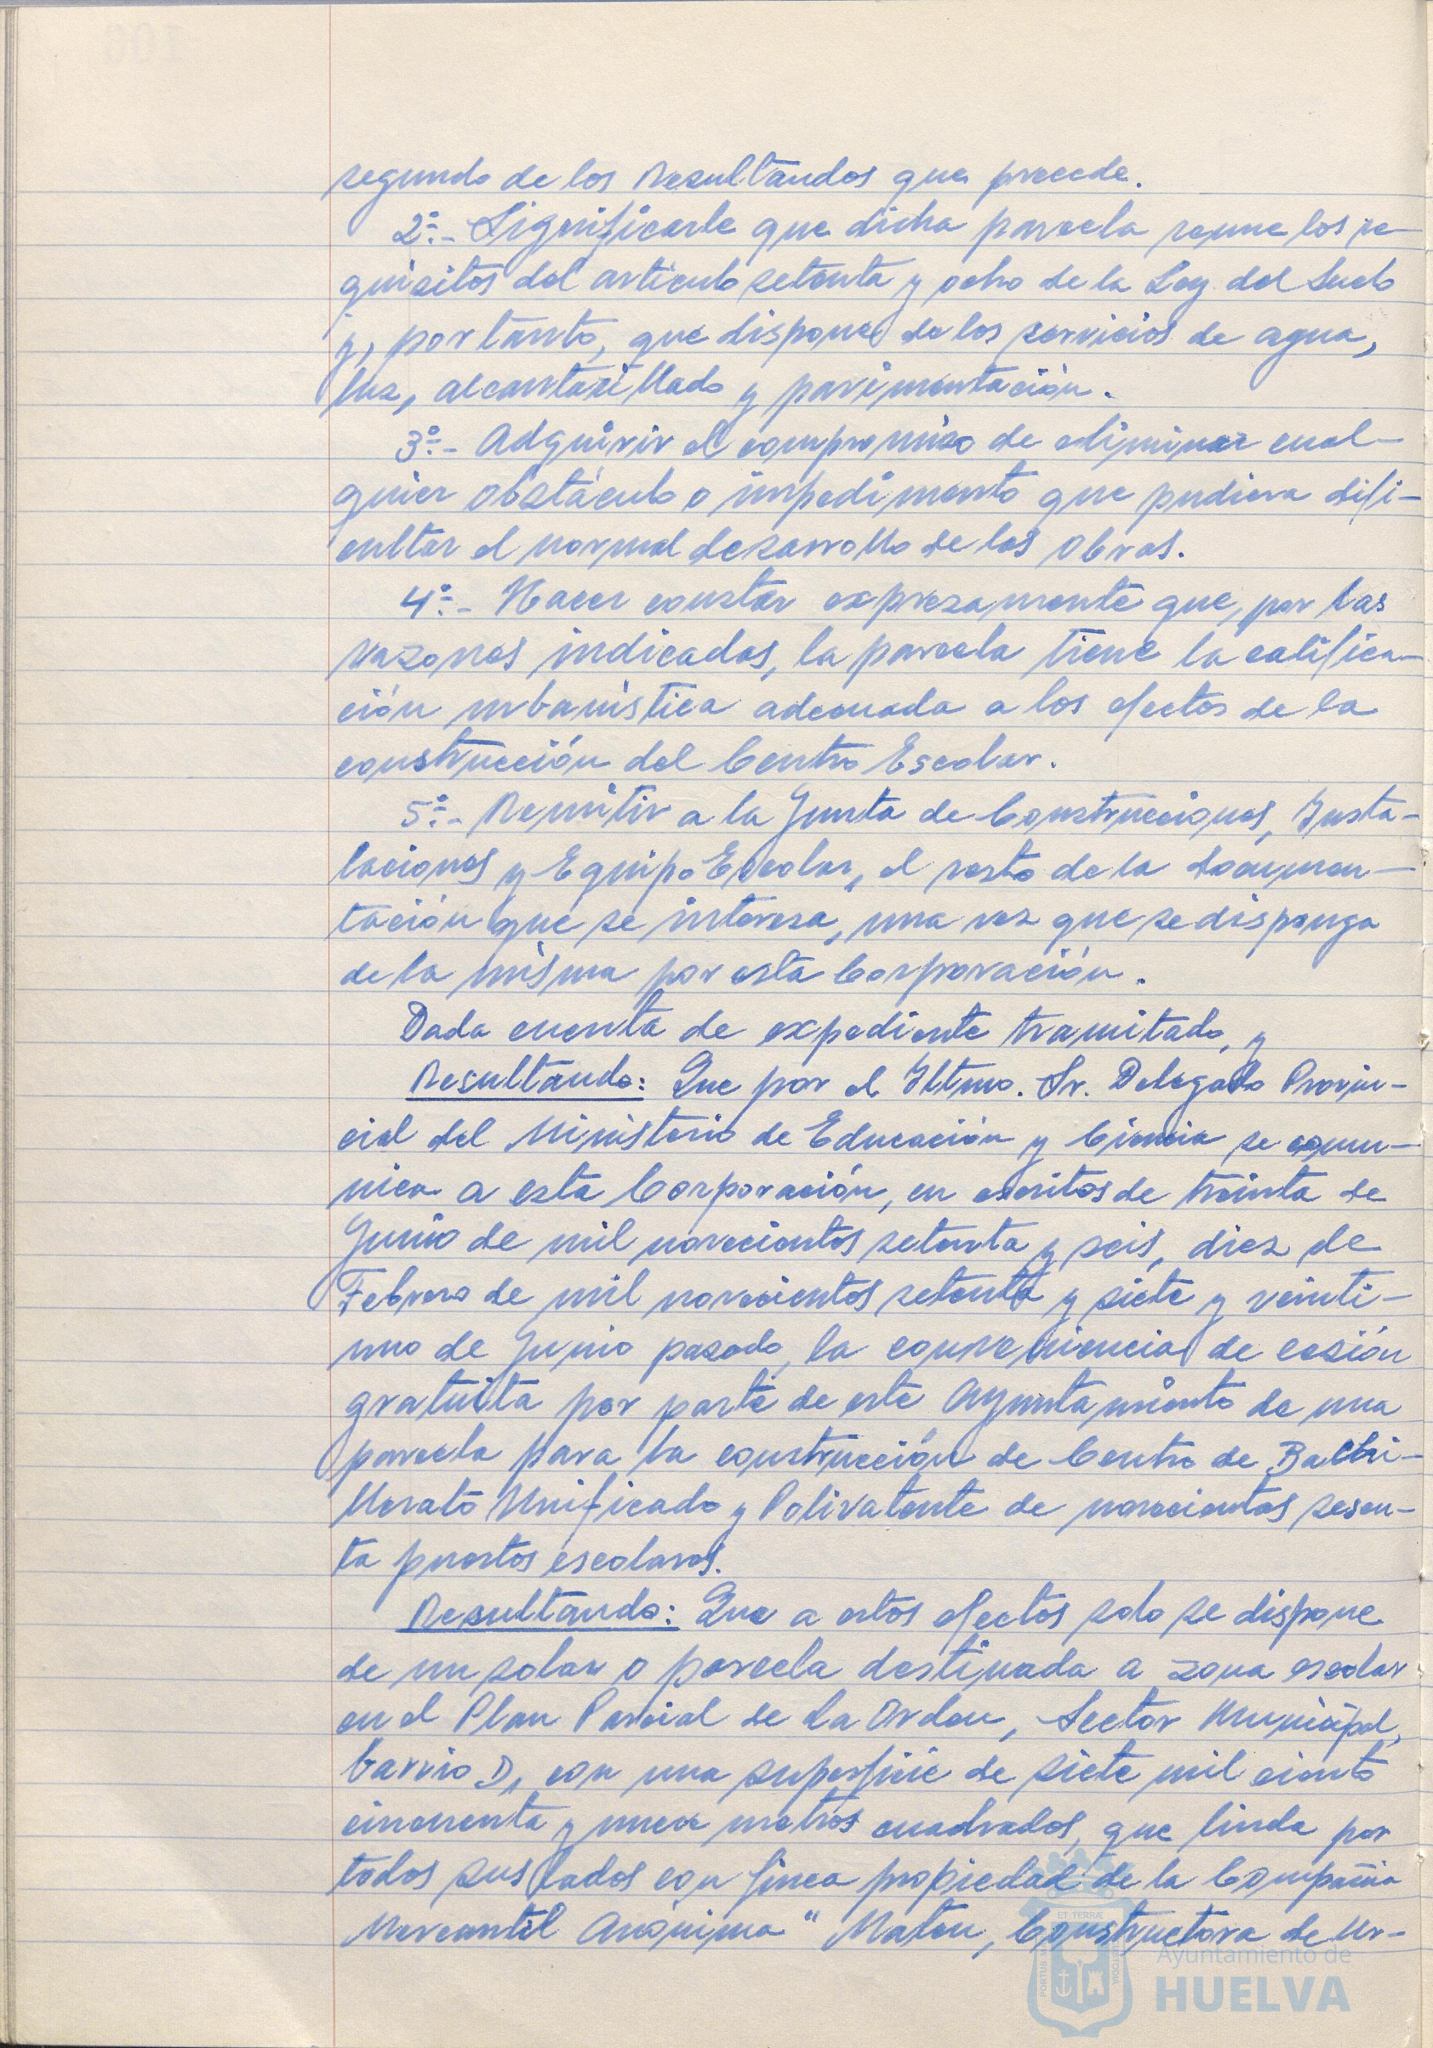 segundo de los Resultandos que precede.
2º.- Significarle que dicha parcela reune los re-
quisitos del artículo setenta y ocho de la Ley del Suelo
y, por tanto, que dispone de los servicios de agua,
luz, alcantarillado y pavimentación.
3º.- Adquirir el compromiso de eliminar cual-
quier obstáculo o impedimento que pudiera difi-
cultar el normal desarrollo de las obras.
4º.- Hacer constar expresamente que, por las
razones indicadas, la parcela tiene la califica-
ción urbanística adecuada a los efectos de la
construcción del Centro Escolar.
5º.- Remitir a la Junta de Construcciones, Insta-
laciones y Equipo Escolar, el resto de la documen-
tación que se interesa, una vez que se disponga
de la misma por esta Corporación.
Dada cuenta de expediente tramitado, y
Resultando: Que por el Iltmo. Sr. Delegado Provin-
cial del Ministerio de Educación y Ciencia se comu-
nica a esta Corporación, en escritos de treinta de
Junio de mil novecientos setenta y seis, diez de
Febrero de mil novecientos setenta y siete y veinti-
uno de Junio pasado, la conveniencia de cesión
gratuita por parte de este Ayuntamiento de una
parcela para la construcción de Centro de Bachi-
llerato Unificado y Polivalente de novecientos sesen-
ta puestos escolares.
Resultando: Que a estos efectos solo se dispone
de un solar o parcela destinada a zona escolar
en el Plan Parcial de La Orden, Sector Municipal,
barrio D, con una superficie de siete mil ciento
cincuenta y nueve metros cuadrados, que linda por
todos sus lados con finca propiedad de la Compañía
Mercantil Anónima "Maten, Constructora de Ur-
ET TERRÆ
Ayuntamiento de
HUELVA